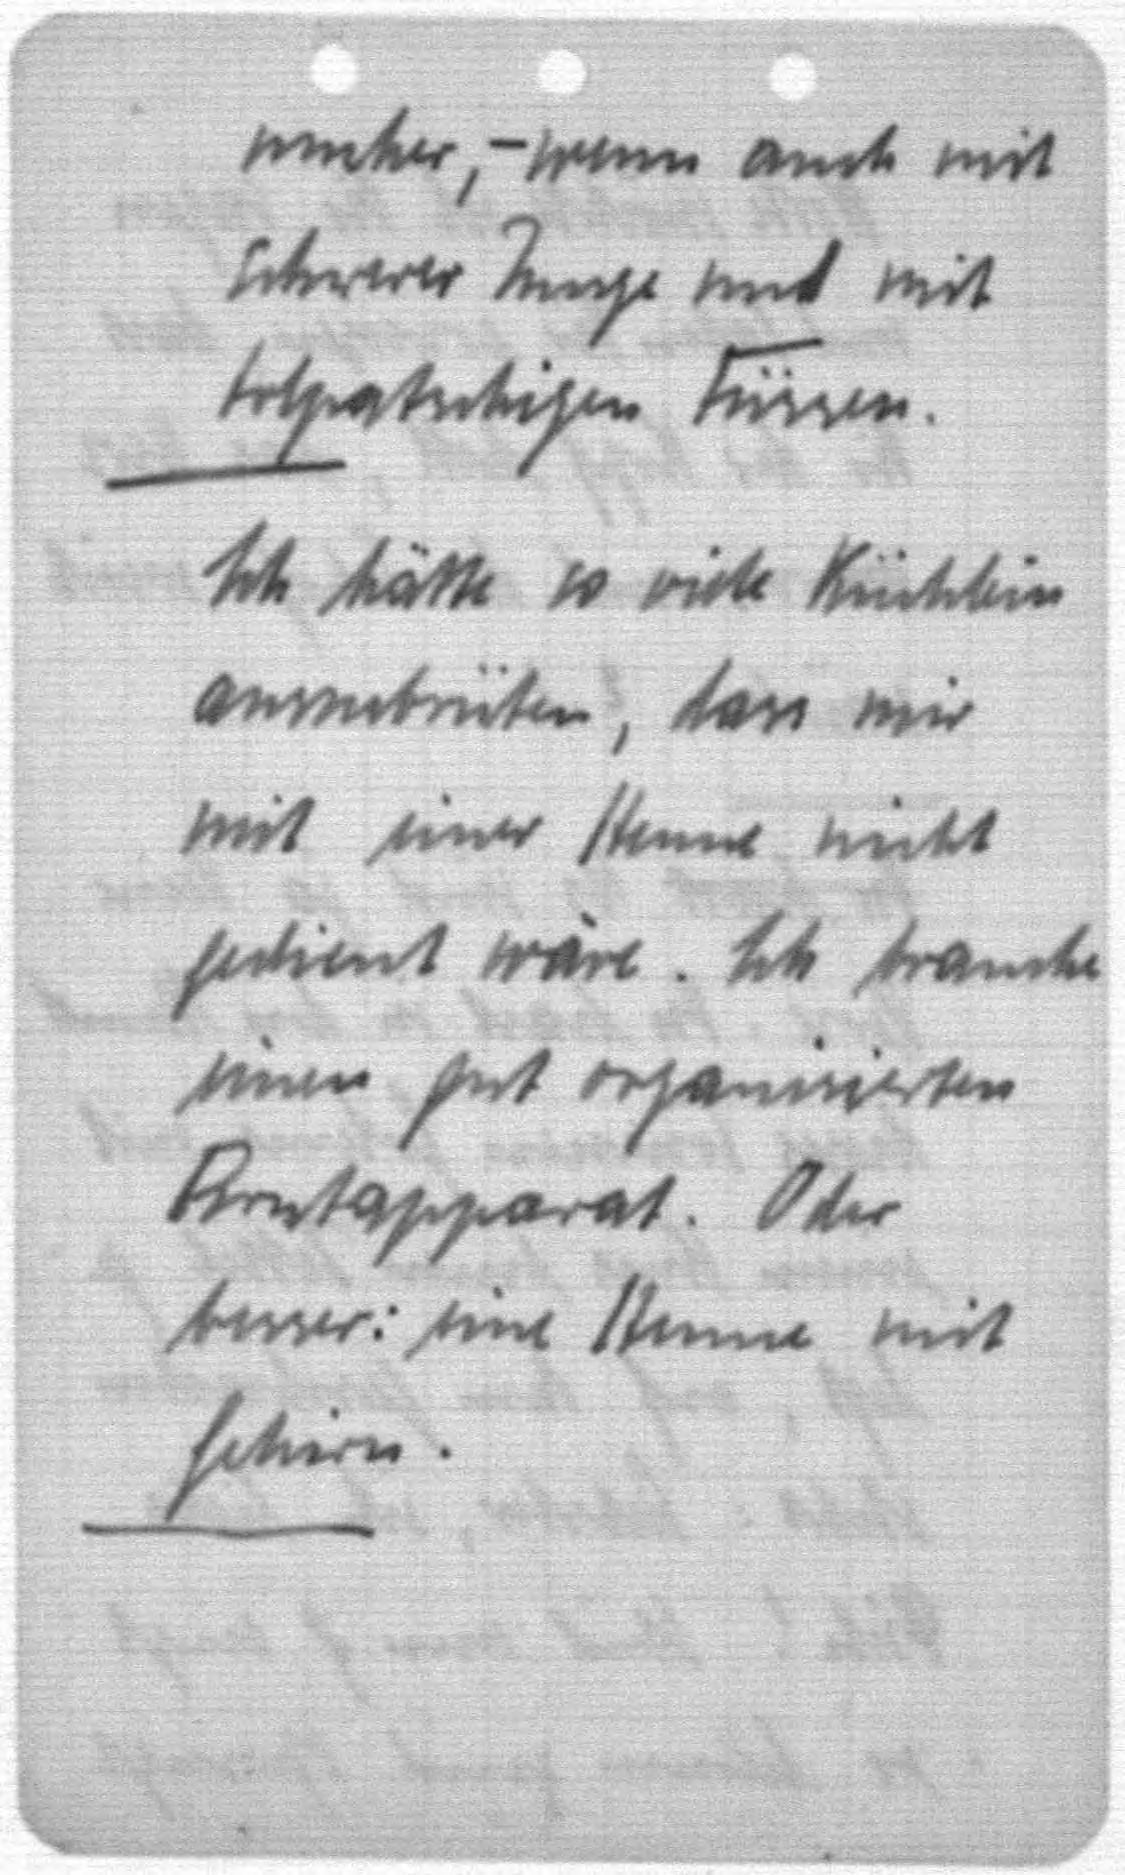 umher, – wenn auch mit
schwerer Zunge und mit
tolpatschigen Füssen.
Ich hätte so viele Küchlein
auszubrüten, dass mir
mit einer Henne nicht
gedient wäre. Ich brauche
einen gut organisierten
Brutapparat. Oder
besser: eine Henne mit
Gehirn.